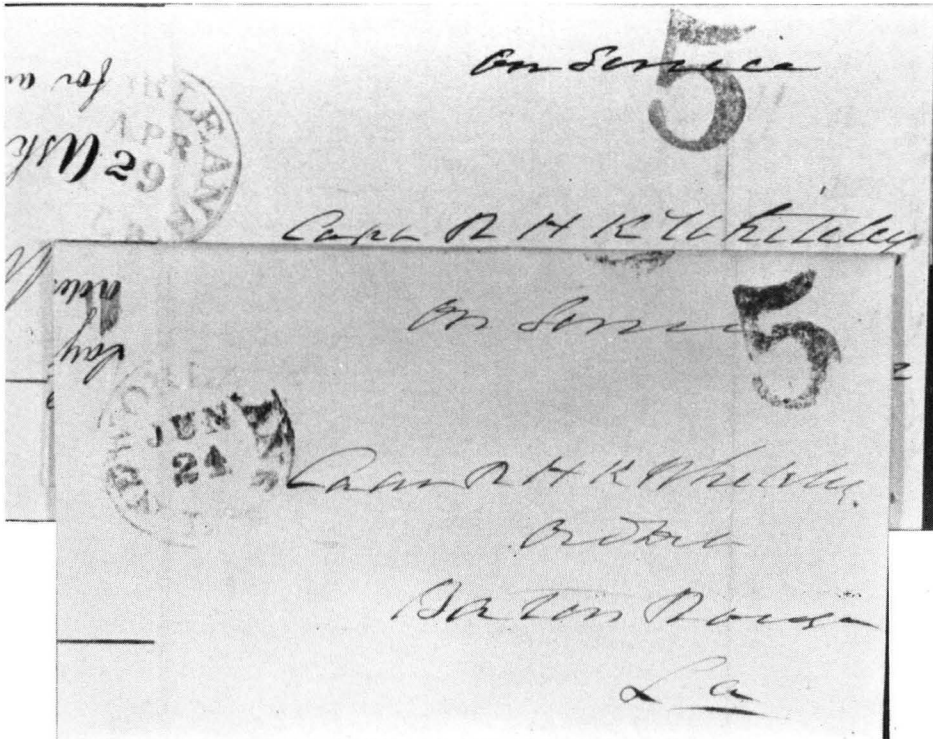 On Service
5
for
ORLEANS
APR
29
Ask
Capn R H K Whiteley
On Service
5
note
day
JUN
24
Capn R H K Whiteley
Ord Dept
Baton Rouge
La